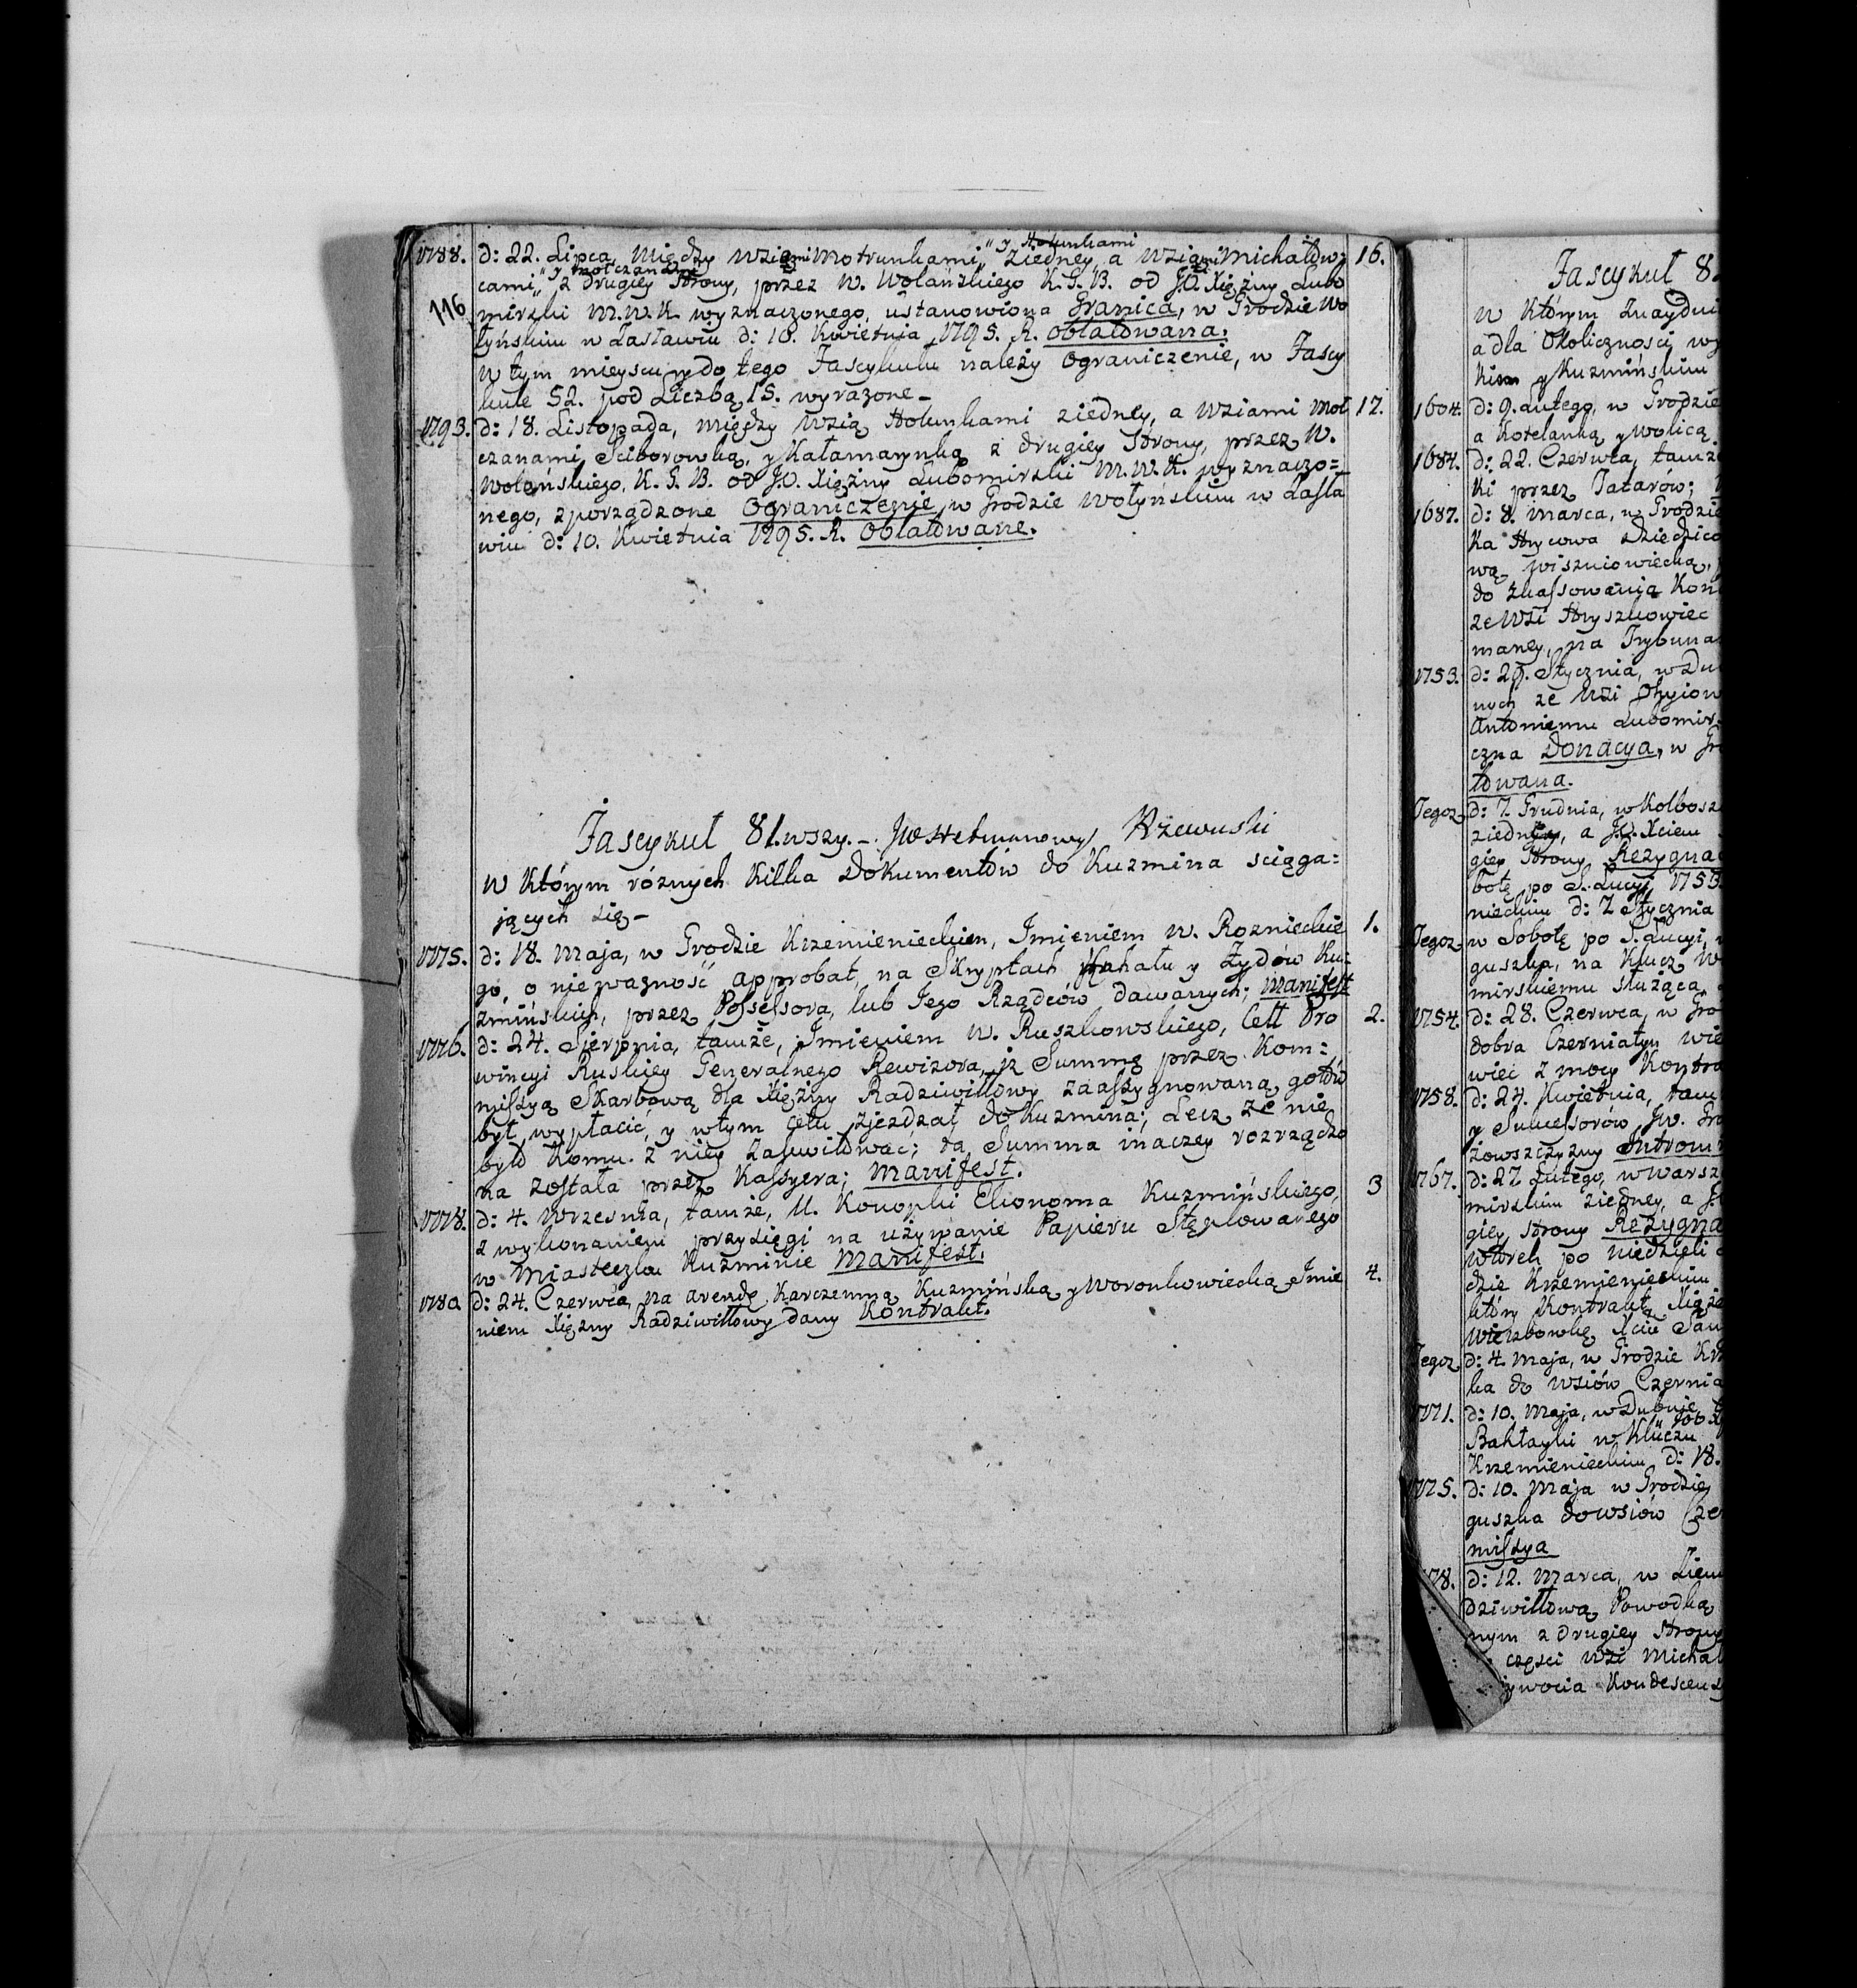 1788. d: 22. Lipca, między wziami Motrunkami „y Hołunkami ziedney, a wziami Michałów= 16.
cami „y Mołczanami z drugiey strony, przez W. Wolańskiego K. G. B. od J.O. Xiężny Lubo
116 mirski M. W. K. wyznaczonego, ustanowiona Granica, w Grodzie Wo
łyńskim w Zasławiu d: 10. Kwietnia 1795. R. oblatowana.
W tym mieyscu y do tego Fascykułu należy Ograniczenie, w Fascy
kule 52. pod Liczbą 15. wyrażone –
1793. d: 18. Listopada, między wzią Hołunkami ziedney, a wziami Moł 17.
czanami, Sciborowką, y Kałamaynką z drugiey strony, przez W.
Wolańskiego, K. G. B. od J.O. Xiężny Lubomirski M. W. K. wyznaczo=
nego, zporządzone Ograniczenie, w Grodzie Wołyńskim w Zasła
wiu d: 10. Kwietnia 1795. R. Oblatowane.
Fascykuł 81.wszy. – JW Hetmanowey Rzewuski
w którym róznych kilka Dokumentów do Kuzmina sciąga=
jących się –
1775. d: 18. Maja, w Grodzie Krzemienieckiem, Imieniem W. Roznieckie 1.
go, o nieważność approbat, na Skryptach Kahału y Żydów Ku=
zmińskich, przez Possessora, lub Jego Rządców dawanych; Manifest
1776. d: 24. Sierpnia, tamże, Imieniem W. Ruszkowskiego, Cełł Pro 2.
wincyi Ruskiey Generalnego Rewizora, iż Summę przez Kom=
missyą Skarbową dla Xiężny Radziwiłłowy zaassygnowaną, gotów
był wypłacić, y wtym celu zjezdżał do Kuzmina; Lecz że nie
było komu z niey zakwitować; ta Summa inaczey rozrządzo
na została przez Kassyera; Manifest.
1778. d: 4. Wrzesnia, tamże, U. Konopki Ekonoma Kuzmińskiego, 3
z wykonaniem przysięgi na używanie Papieru Stęplowanego
w Miasteczku Kuzminie Manifest.
1780 d: 24. Czerwca, na arendę Karczemną Kuzmińską y Woronkowiecką Imie 4.
niem Xiężny Radziwiłłowy dany Kontrakt.
Fascykuł 8
w którym Znaydui
a dla Okoliczności wy
kim y Kuzmińskim
1604. d: 9. Lutego, w Grodzie
a Kotelanką y Wolicą
1684. d: 22. Czerwca, tamże
ki przez Tatarów;
1687. d: 8. Marca, w Grodzie
ka Hrycowa Dziedzica
wą Wiszniowiecką,
do skassowania Kon
ze Wsi Hryszkowiec
maney, na Trybuna
1753. d: 29. Stycznia, w Du
nych ze Wsi
Antoniemu Lubomir
czna Donacya, w Gr
towana.
Tegoz d: 7. Grudnia, w Kolbosz
ziedney, a J.O. Xciem
giey strony Rezygna
botę po S. Lucyi 1753
nieckim d: 7 Stycznia
Tegoz w Sobotę po S. Lucyi,
guszka, na Klucz
mirskiemu służąca,
1754. d: 28. Czerwca, w Gro
dobra Czerniatyn wie
wiec z mocy Kontra
1758. d: 24. Kwietnia, tam
y Sukcessorów JW. Gra
żowszczyzny Intromi
1767. d: 27. Lutego, w Warsz
mirskim ziedney, a J.
giey strony Rezygna
wtorek po Niedzieli
dzie Krzemienieckim
który Kontrakt Xięże
Wierzbowkę Xcie San
Tegoz d: 4. Maja, w Grodzie Krz
ka do Wsiów Czernia
1771. d: 10. Maja, w Dubnie
Bakłayki w Kluczu
Krzemienieckim d: 18.
1775. d: 10. Maja w Grodzie
guszka dowsiów Cze
missya
78. d: 12. Marca, w Ziem
dziwiłłową Powodką
nym z drugiey strony
częsci wsi Michał
ywocia Kondescens